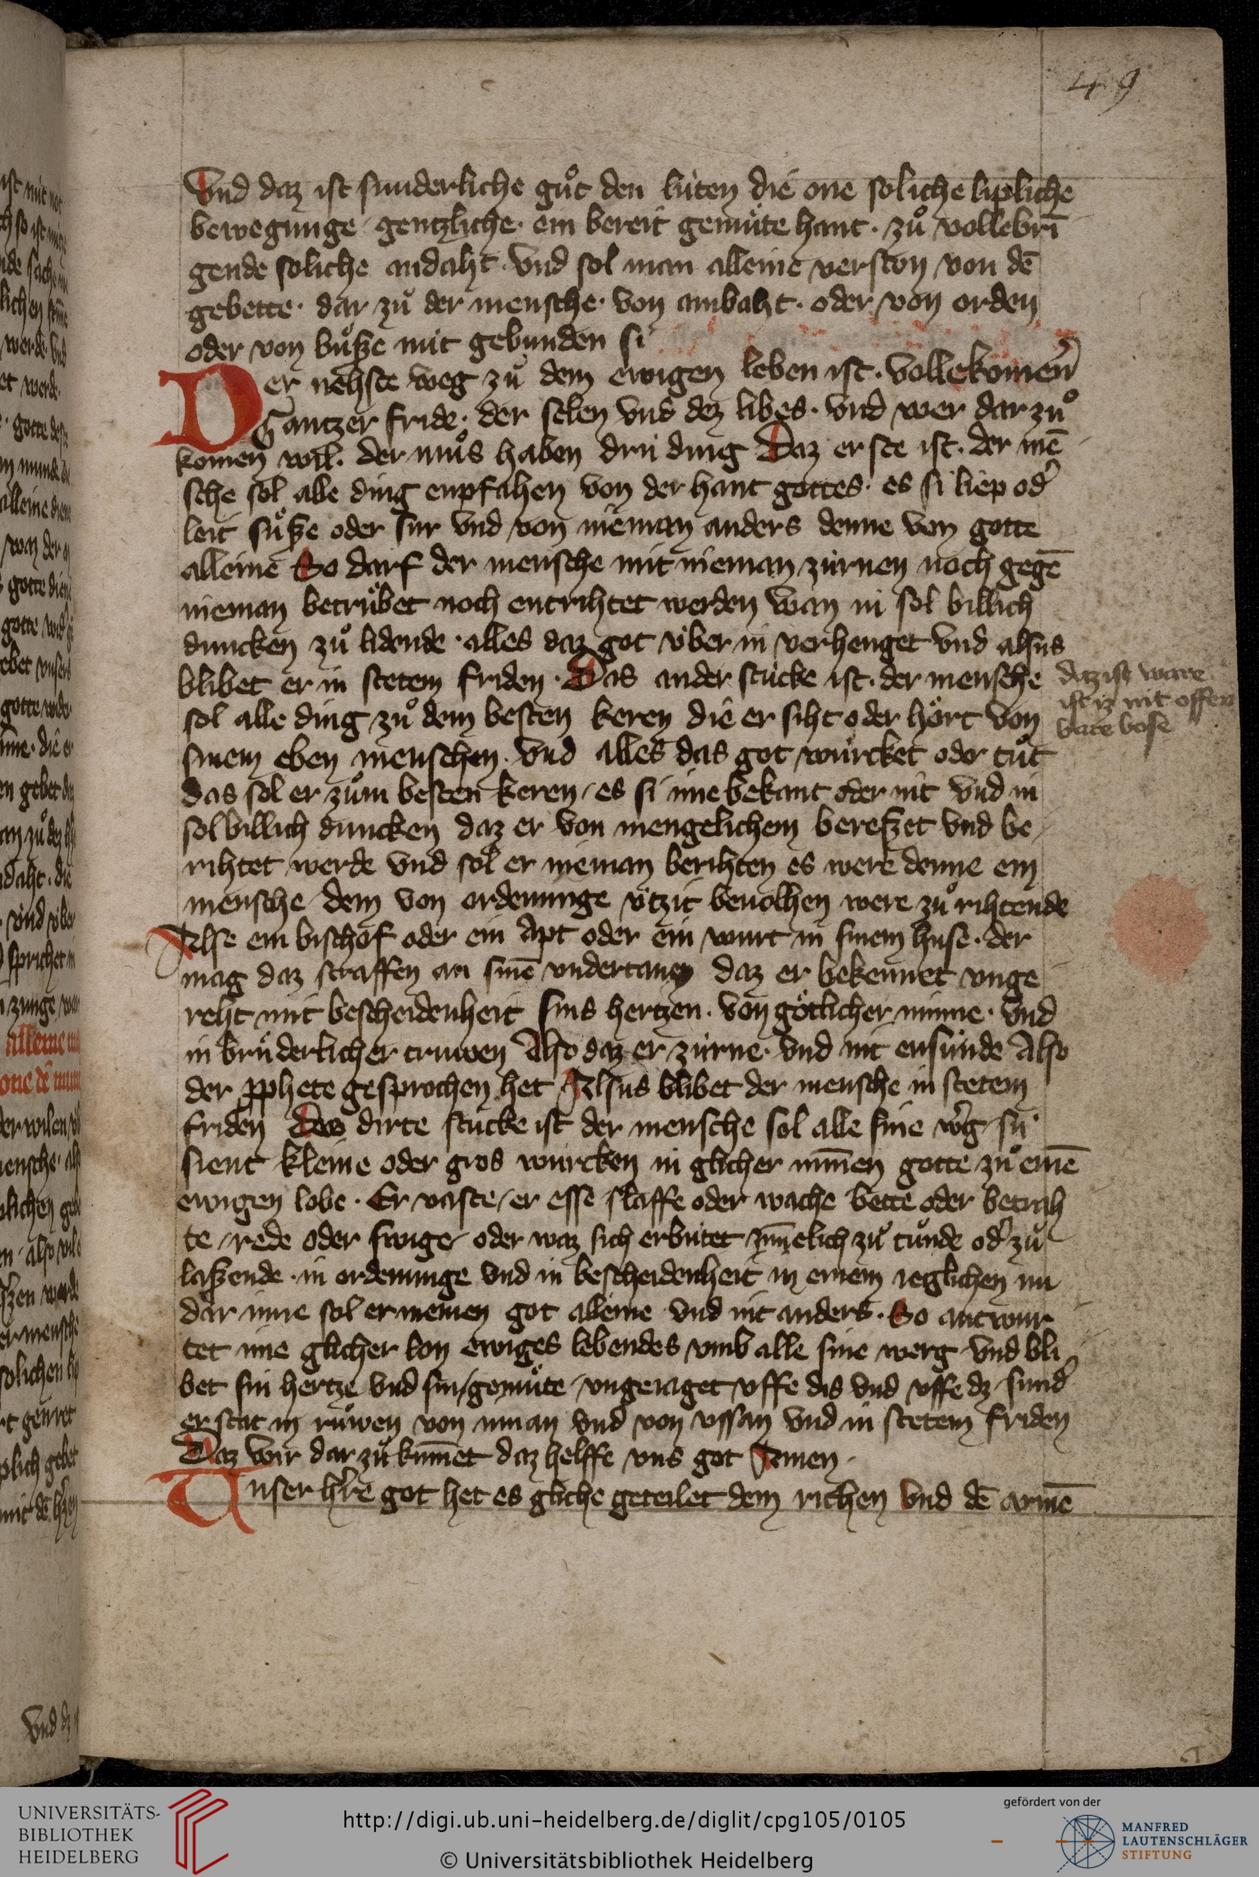 49
Vnd daz ist sunderliche guͦt den lúten die one soliche lipliche
bewegunge gentzliche · ein bereit gemuͤte hant · zuͦ vollebrī
gende soliche andaht · vnd sol man alleine verston von dē
gebette · dar zuͦ der mensche · von ambaht · oder von orden
oder von buͦße mit gebunden si
Der nehste weg zuͦ dem ewigen leben ist · vollekomen̉
Gantzer fride · der selen vnd dez libes · vnd wer dar zuͦ
komen wil · der muͦs haben drú ding Daz erste ist · der mē
sche sol alle ding enpfahen von der hant gottes · es si liep od̉
leit suͦße oder sur vnd von nieman anders denne von gotte
alleine So darf der mensche mit nieman zúrnen noch gegē
nieman betruͤbet noch entrihtet werden wan in sol billich
duncken zuͦ lidende · alles daz got v́ber in verhenget vnd alsus
blibet er in stetem friden · Das ander stúcke ist · der mensche
sol alle ding zuͦ dem besten keren die er siht oder hoͤrt von
sinem eben menschen · vnd alles das got wúrcket oder tuͦt
das sol er zuͦm besten keren / es si ime bekant oder nit vnd in
sol billich duncken daz er von mengelichem bereßet vnd be
rihtet werde vnd sol er nieman berihten es were denne ein
mensche dem von ordenunge v́tzit beuolhen were zuͦ rihtende
Alse ein bischof oder ein Apt oder ein wurt in sinem huse · der
mag daz straffen an sinē vndertanen daz er bekennet vnge
reht mit bescheidenheit sins hertzen · von goͤtlicher minne · vnd
in bruͤderlicher truwen Also daz er zúrne · vnd nit ensúnde Also
der pphete gesprochen het Alsus blibet der mensche in stetem
friden Das dirte stucke ist der mensche sol alle sine w̉g sú
sient kleine oder gros wúrcken in glicher mīnen gotte zuͦ einē
ewigen lobe · Er vaste / er esse slaffe oder wache bette oder betrah
te / rede oder swige oder waz sich erbútet zīmelich zuͦ tuͦnde od̉ zuͦ
laßende · in ordenunge vnd in bescheidenheit in einem ieglichen nu
dar inne sol er meinen got alleine vnd nit anders · So antwur
tet ime glicher lon ewiges lebendes vmb alle sine werg vnd bli
bet sin hertze vnd sin / gemuͤte / vngeiaget vffe dis vnd vffe dz sund̉
er stat in ruͦwen von innan vnd von vssan vnd in stetem friden
Daz wir dar zuͦ kum̄et daz helffe vns got Amen ·
Vnser h̉re got het es gliche geteilet dem richen vnd dē armē
daz ist ware
ist iz nit offen
bare bose
UNIVERSITÄTS-
BIBLIOTHEK
HEIDELBERG
http://digi.ub.uni-heidelberg.de/diglit/cpg105/0105
© Universitätsbibliothek Heidelberg
gefördert von der
MANFRED
LAUTENSCHLÄGER
STIFTUNG